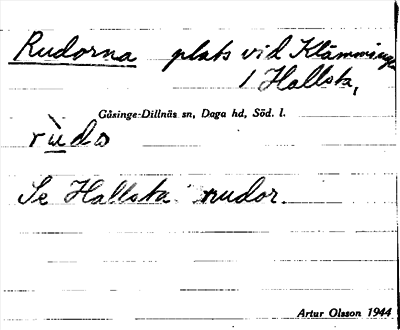 Rudorna plats vid Klämmingen
i Hallsta,
Gåsinge-Dillnäs sn, Daga hd, Söd. l.
Se Hallsta rudor.
Artur Olsson 1944